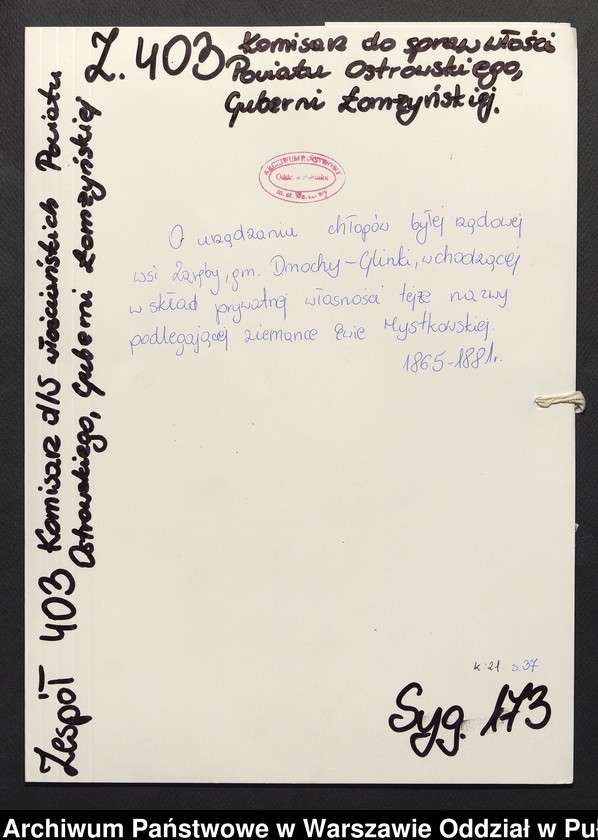 Z. 403 Komisarz do spraw włości
Powiatu Ostrowskiego,
Guberni Łomżyńskiej.
ARCHIWUM PAŃSTWOWE
m. st. Warszawy
O urządzaniu chłopów byłej rządowej
wsi Zaręby, gm. Dmochy-Glinki, wchodzącej
w skład prywatnej własności tejże nazwy
podlegającej ziemance Ewie Mystkowskiej.
1865-1881r.
k 21 s. 37
Syg. 173
Zespół 403 Komisarz d/s włościańskich Powiatu
Ostrowskiego, Guberni Łomżyńskiej
Archiwum Państwowe w Warszawie Oddział w Puł